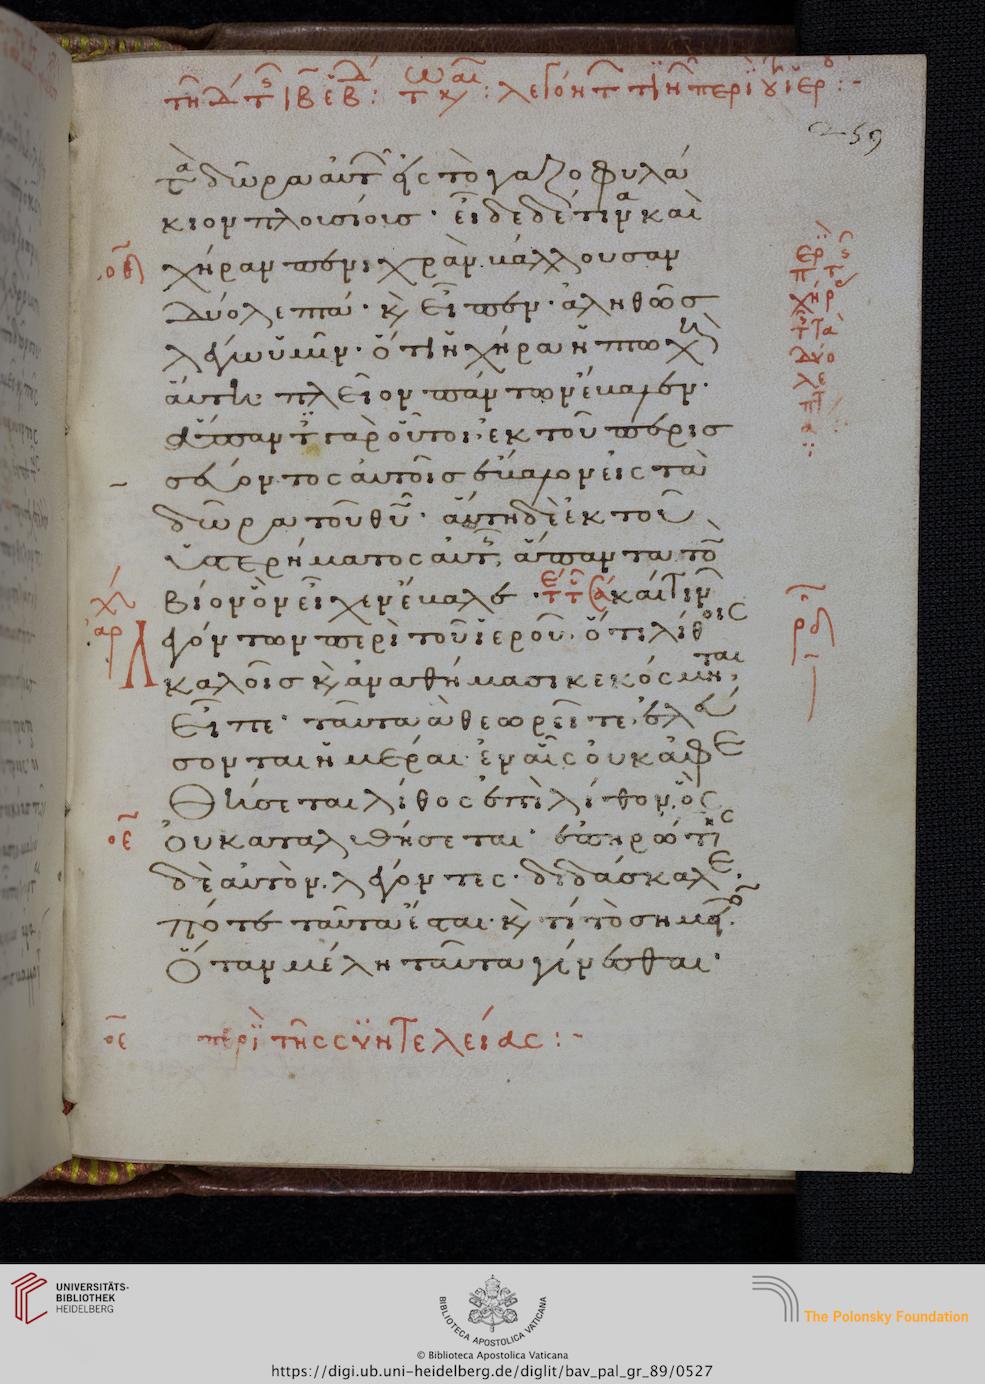 259
τὰ δῶρα αὐτῶν εἰς τὸ γαζοφυλά
κιον πλουσίους · εἶδε δέ τινα καὶ
χήραν πενιχρὰν βάλλουσαν
δύο λεπτά · καὶ εἶπεν · ἀληθῶς
λέγω ὑμῖν · ὅτι ἡ χήρα ἡ πτωχὴ
αὕτη · πλεῖον πάντων ἔβαλεν ·
ἅπαντες γὰρ οὗτοι ἐκ τοῦ περισ
σεύοντος αὐτοῖς ἔβαλον εἰς τὰ
δῶρα τοῦ θυ · αὕτη δὲ ἐκ τοῦ
ὑστερήματος αὐτῆς ἅπαντα τὸν
βίον ὃν εἶχεν ἔβαλε · καί τινων
λεγόντων περὶ τοῦ ἱεροῦ · ὅτι λίθοις
καλοῖς καὶ ἀναθήμασι κεκόσμηται,
εἶπε · ταῦτα ἃ θεωρεῖτε, ἐλεύ
σονται ἡμέραι ἐν αἷς οὐκ ἀφε
θήσεται λίθος ἐπὶ λίθον, ὃς
οὐ καταλυθήσεται · ἐπηρώτησ
δὲ αὐτὸν λέγοντες · διδάσκαλε,
πότε ταῦτα ἔσται · καὶ τί τὸ σημεῖον
ὅταν μέλη ταῦτα γίνεσθαι ·
οε περὶ τῆς συντελείας :-
UNIVERSITÄTS-
BIBLIOTHEK
HEIDELBERG
BIBLIOTECA APOSTOLICA VATICANA
The Polonsky Foundation
© Biblioteca Apostolica Vaticana
https://digi.ub.uni-heidelberg.de/diglit/bav_pal_gr_89/0527